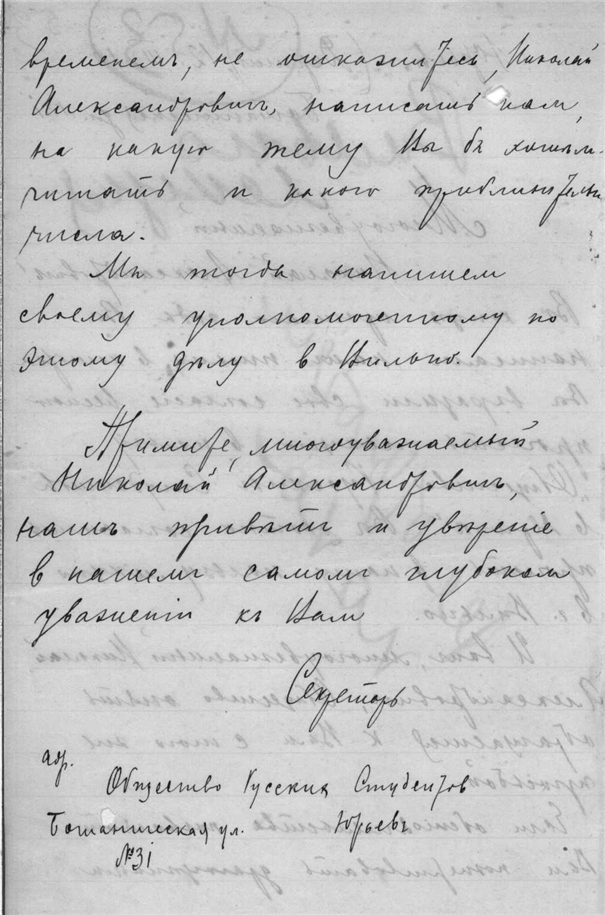 временемъ, не откажитесь, Николай
Александровичъ, написать намъ,
на какую тему Вы бъ хотѣли
читать и какого приблизительно
числа.
Мы тогда напишем
своему уполномоченному по
этому дѣлу в Вильно.
Примите, многоуважаемый
Николай Александровичъ,
нашъ привѣтъ и увѣрение
в нашем самомъ глубоком
уважении къ Вам
Секретарь
адр.
Общество Русских Студентов
Ботаническая ул. Юрьевъ
№31